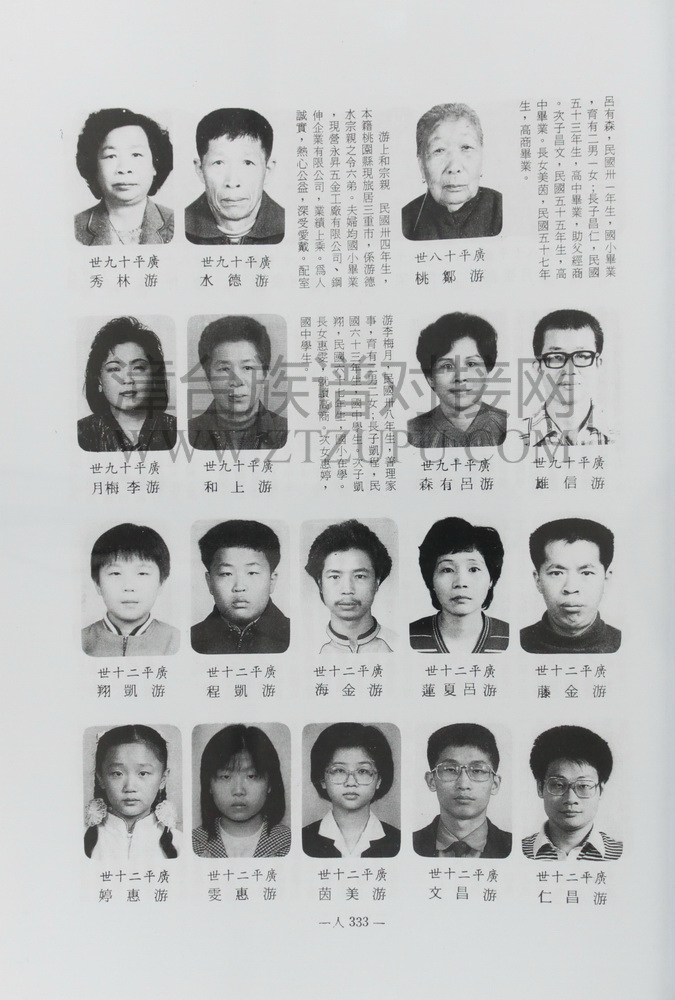 呂有森，民國卅一年生，國小畢業
，育有二男一女；長子昌仁，民國
五十三年生，高中畢業，助父經商
。次子昌文，民國五十五年生，高
中畢業。長女美茵，民國五十七年
生，高商畢業。
廣平十八世
游鄒桃
游上和宗親　民國卅四年生，
本籍桃園縣現旅居三重市，係游德
水宗親之令六弟。夫婦均國小畢業
，現營永昇五金工廠有限公司、鋼
伸企業有限公司，業績上乘。爲人
誠實，熱心公益，深受愛戴。配室
廣平十九世
游德水
廣平十九世
游林秀
廣平十九世
游信雄
廣平十九世
游呂有森
游李梅月，民國卅八年生，善理家
事，育有二男二女；長子凱程，民
國六十三年生，國中學生。次子凱
翔，民國六十七年生，國小在學。
長女惠雯，就讀高商。次女惠婷，
國中學生。
廣平十九世
游上和
廣平十九世
游李梅月
廣平二十世
游金藤
廣平二十世
游呂夏蓮
廣平二十世
游金海
廣平二十世
游凱程
廣平二十世
游凱翔
廣平二十世
游昌仁
廣平二十世
游昌文
廣平二十世
游美茵
廣平二十世
游惠雯
廣平二十世
游惠婷
—人 333—
漳台族谱对接网
WWW.ZTZUPU.COM